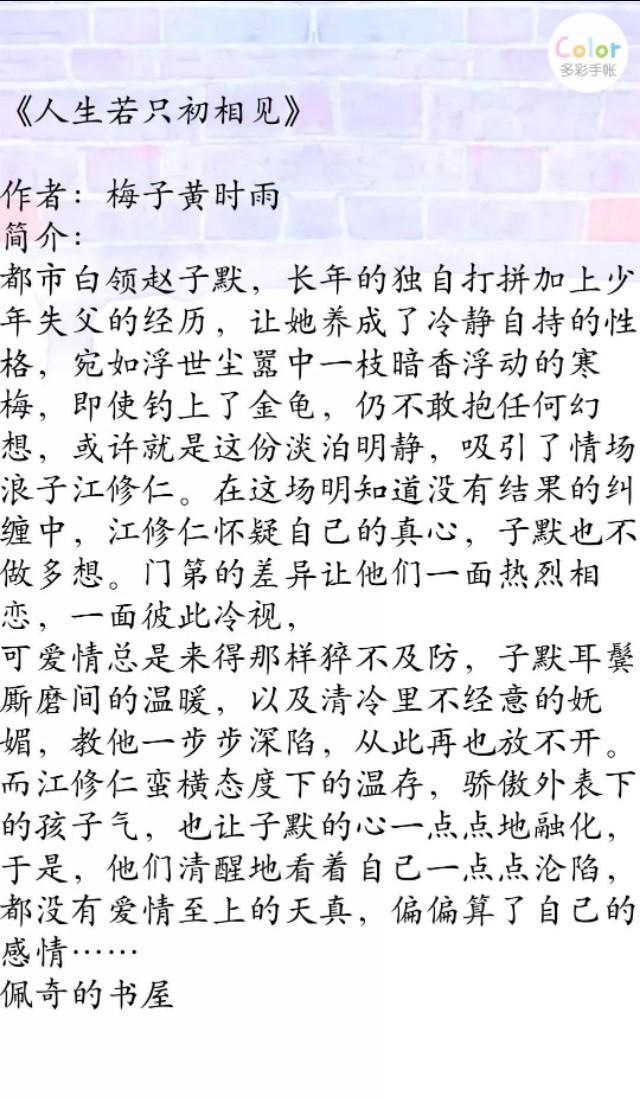 Color
多彩手帐
《人生若只初相见》
作者：梅子黄时雨
简介：
都市白领赵子默，长年的独自打拼加上少
年失父的经历，让她养成了冷静自持的性
格，宛如浮世尘嚣中一枝暗香浮动的寒
梅，即使钓上了金龟，仍不敢抱任何幻
想，或许就是这份淡泊明静，吸引了情场
浪子江修仁。在这场明知道没有结果的纠
缠中，江修仁怀疑自己的真心，子默也不
做多想。门第的差异让他们一面热烈相
恋，一面彼此冷视，
可爱情总是来得那样猝不及防，子默耳鬓
厮磨间的温暖，以及清冷里不经意的妩
媚，教他一步步深陷，从此再也放不开。
而江修仁蛮横态度下的温存，骄傲外表下
的孩子气，也让子默的心一点点地融化，
于是，他们清醒地看着自己一点点沦陷，
都没有爱情至上的天真，偏偏算了自己的
感情……
佩奇的书屋